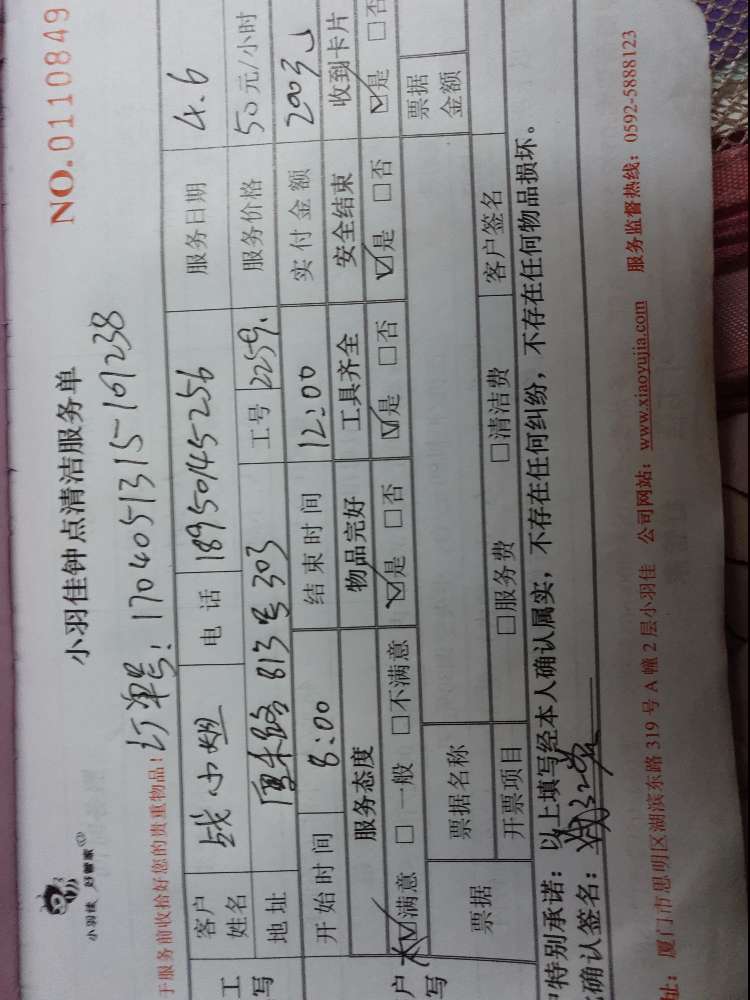 小羽佳 好管家
小羽佳钟点清洁服务单
NO.0110849
订单号:1704051315-101238
于服务前收拾好您的贵重物品!
工 写
客户姓名 战小姐 电话 18950145256 服务日期 4.6
地址 厦禾路 813号303 工号 2259. 服务价格 50元/小时
开始时间 8:00 结束时间 12:00 实付金额 200元
服务态度 物品完好 工具齐全 安全结束 收到卡片
户 写
☑满意 □一般 □不满意 ☑是 □否 ☑是 □否 ☑是 □否 ☑是 □否
票据 票据名称 票据金额
开票项目 □服务费 □清洁费 客户签名
特别承诺:以上填写经本人确认属实,不存在任何纠纷,不存在任何物品损坏。
确认签名:
址:厦门市思明区湖滨东路319号A幢2层小羽佳 公司网站:www.xiaoyujia.com 服务监督热线:0592-5888123